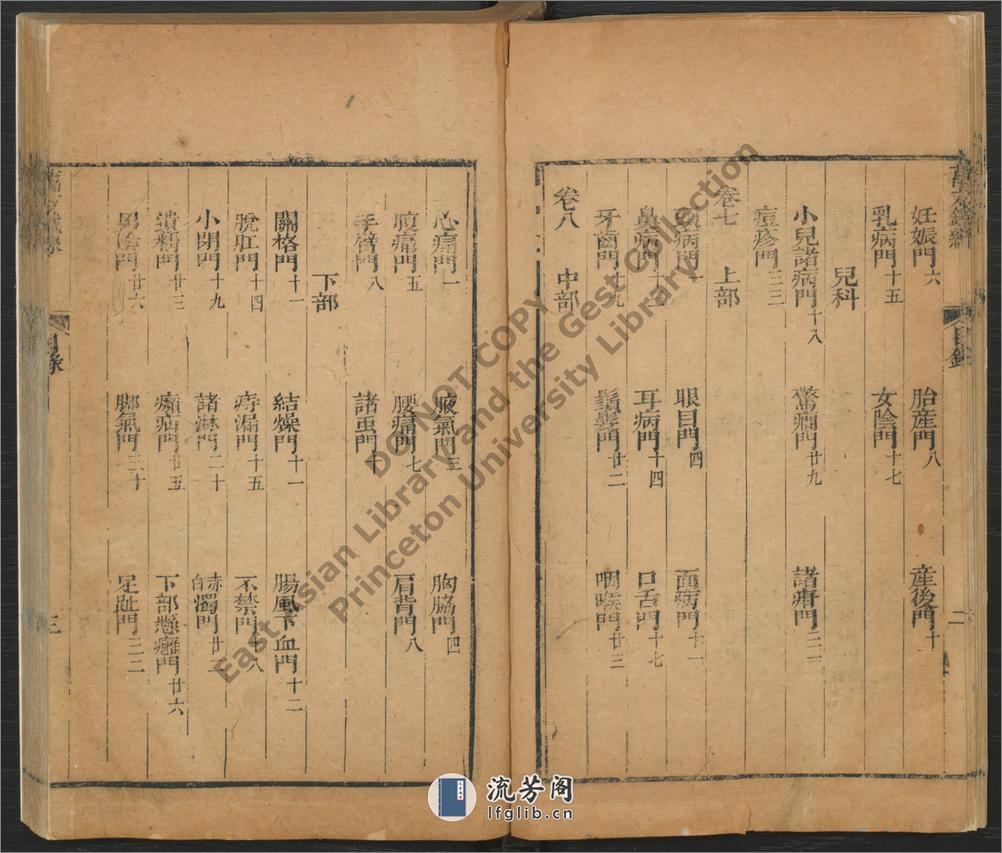 目錄
二
妊娠門六 胎産門八 産後門十
乳病門十五 女陰門十七
兒科
小兒諸病門十八 驚癇門廿九 諸疳門三一
痘疹門三三
卷七 上部
病門一 眼目門四 面病門十一
鼻病門十二 耳病門十四 口舌門十七
牙齒門十九 鬚髮門廿二 咽喉門廿三
卷八 中部
心痛門一 腋氣門三 胸脇門四
腹痛門五 腰痛門七 肩背門八
手臂門八 諸蟲門十
下部
關格門十一 結燥門十一 腸風下血門十二
脫肛門十四 痔漏門十五 不禁門十八
小閉門十九 諸淋門二十 赤白濁門廿二
遺精門廿三 㿗疝門廿五 下部懸癰門廿六
男陰門廿六 脚氣門三十 足趾門三二
目錄
三
DO NOT COPY
East Asian Library and the Gest Collection
Princeton University Library
流芳阁
lfglib.cn